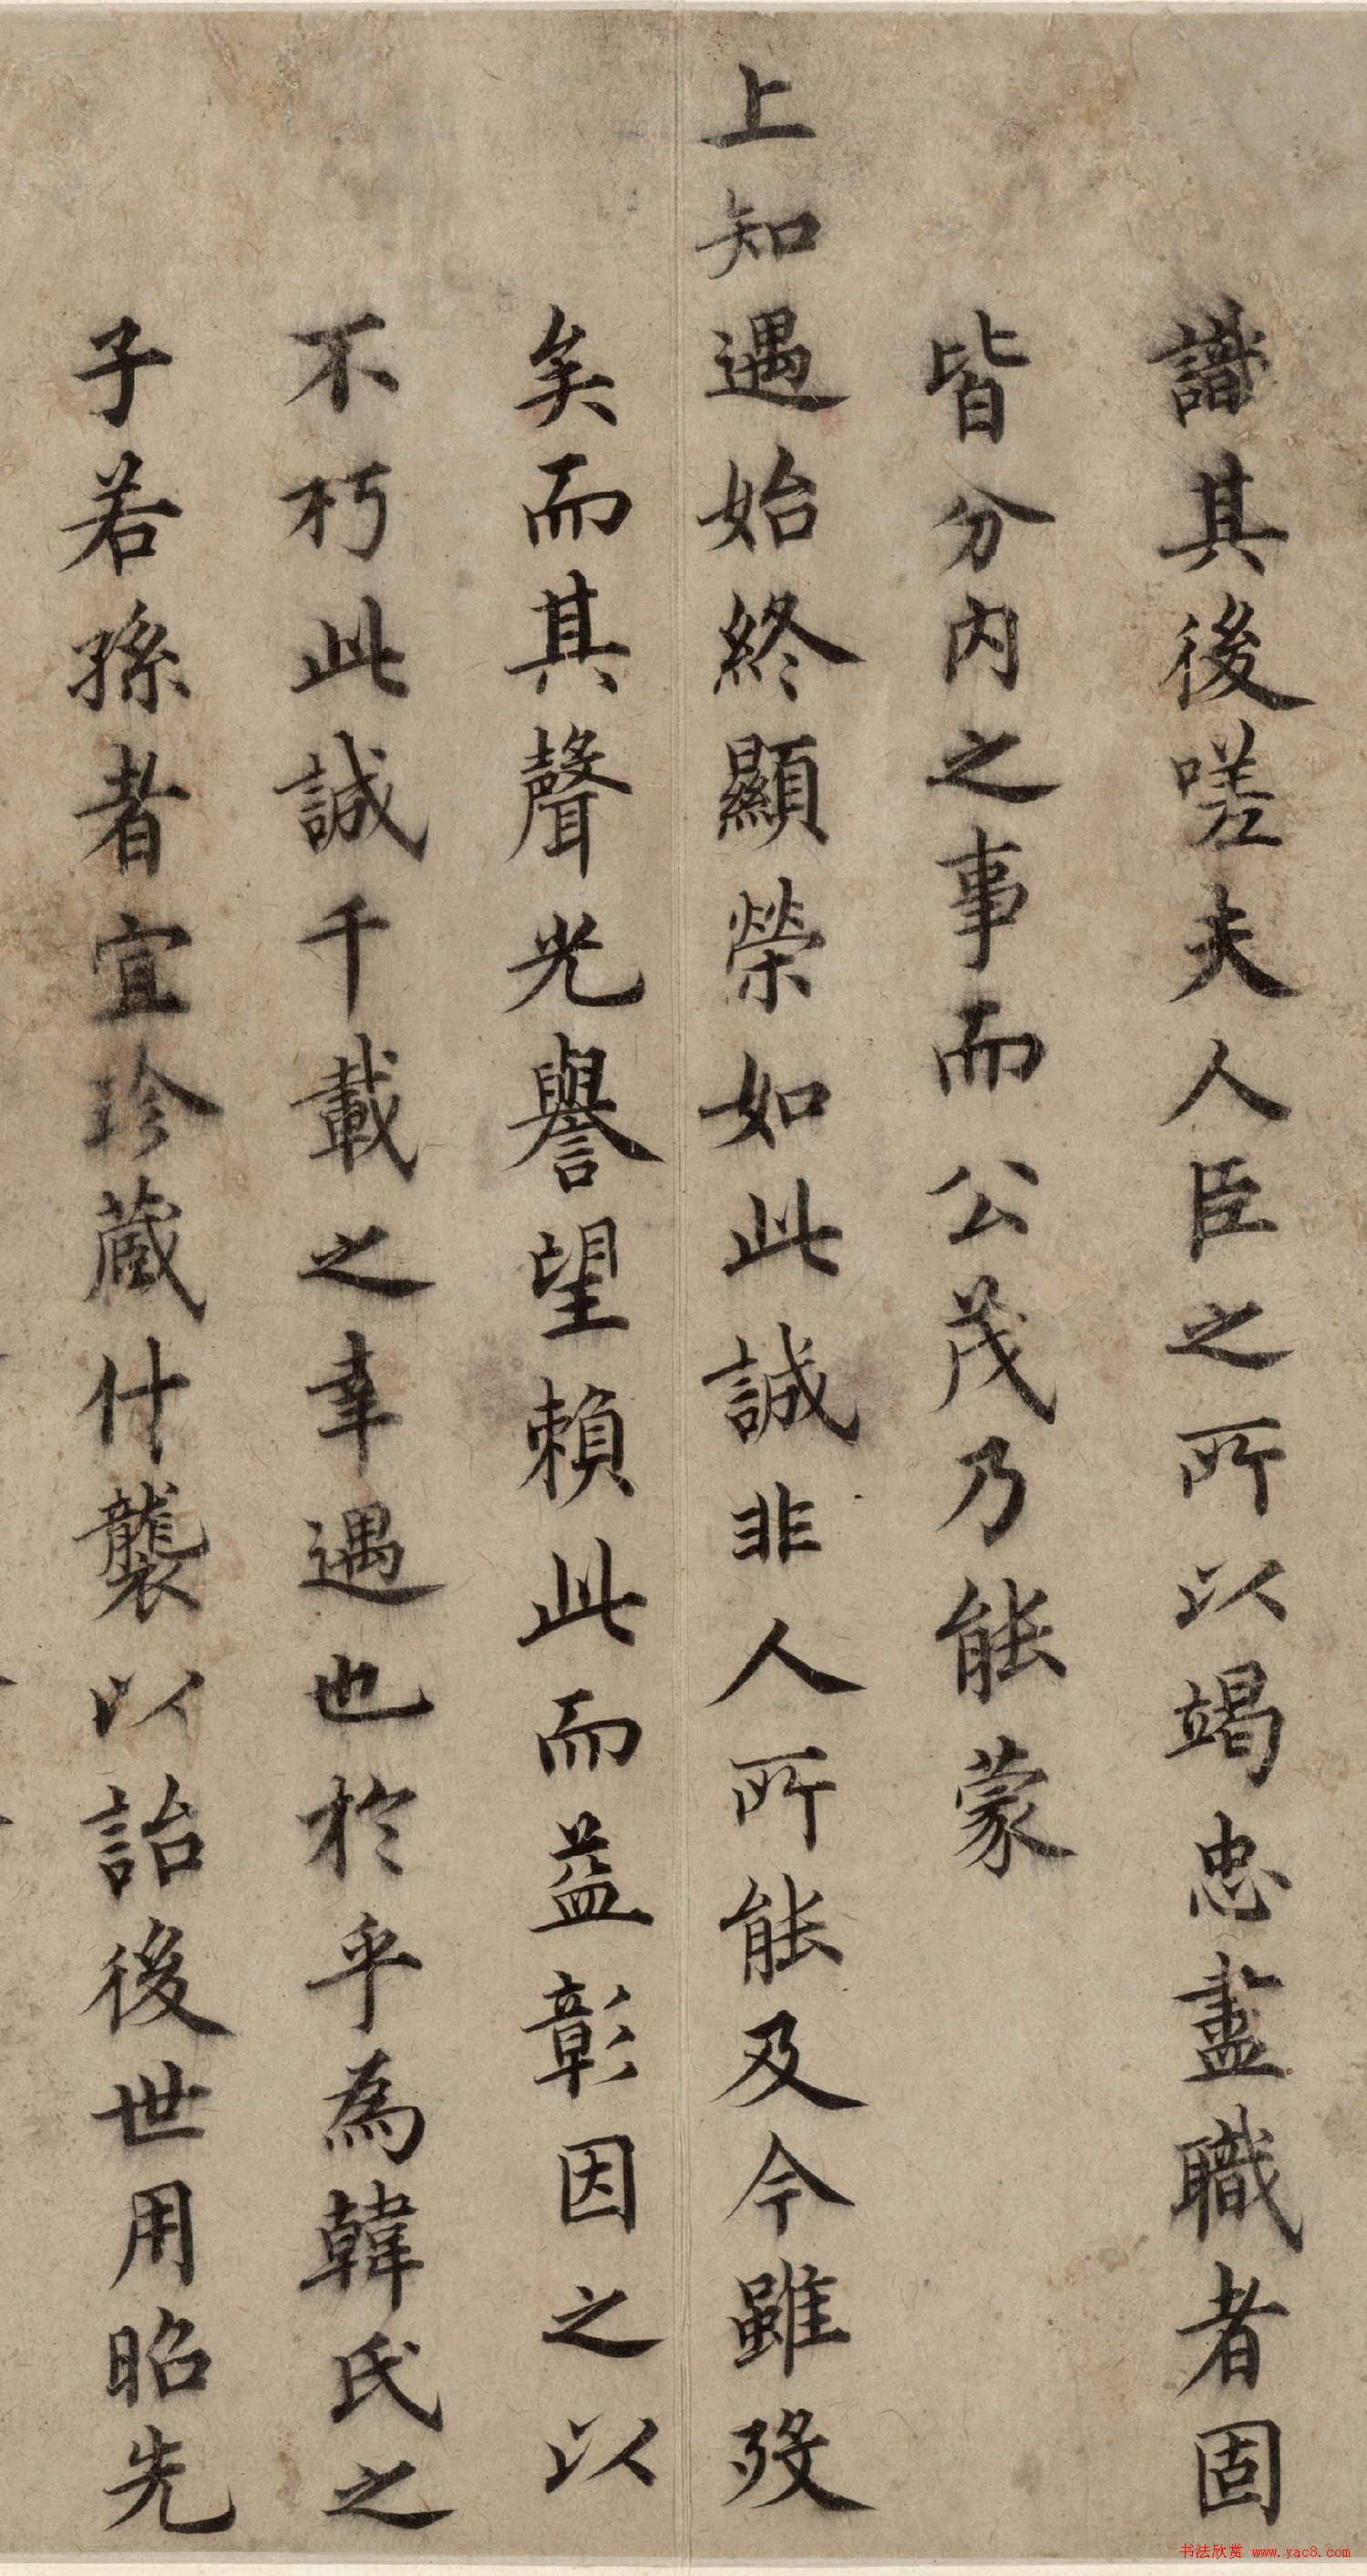 識其後嗟夫人臣之所以竭忠盡職者固
皆分内之事而公茂乃能蒙
上知遇始終顯榮如此誠非人所能及今雖歿
矣而其聲光譽望賴此而益彰因之以
不朽此誠千載之幸遇也於乎為韓氏之
子若孫者宜珍藏什襲以詒後世用昭先
书法欣赏 www.yac8.com